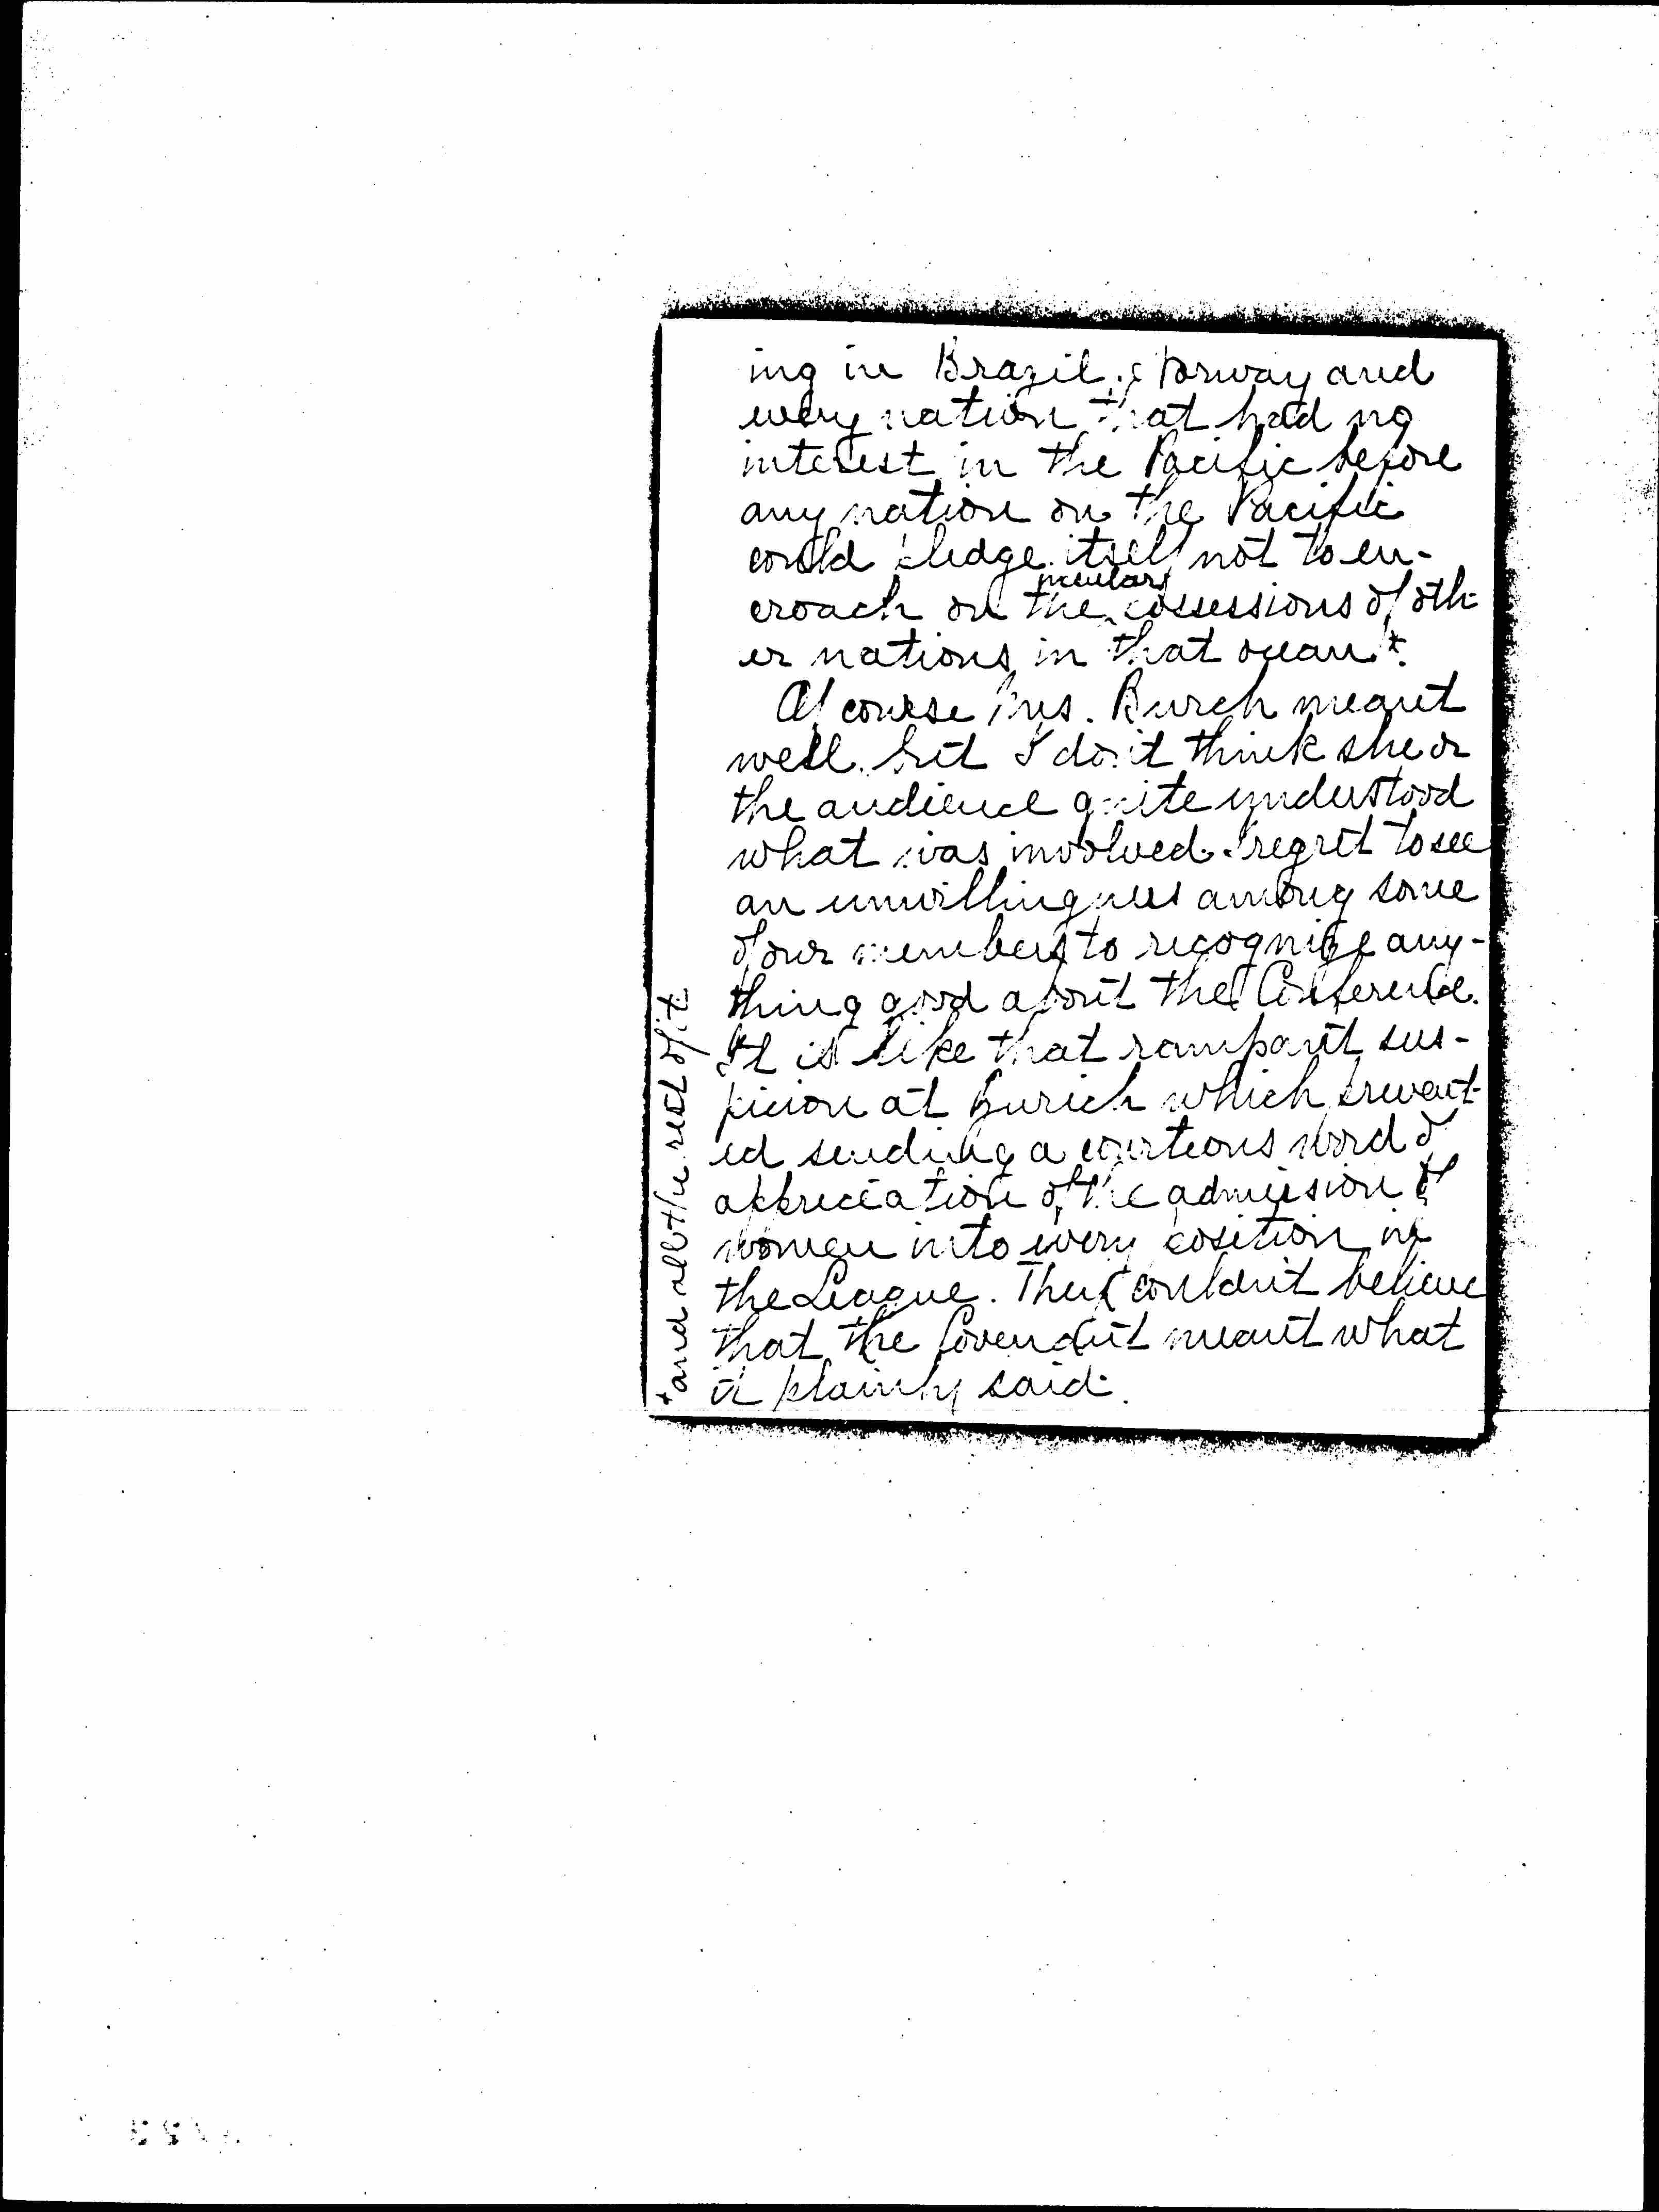 ing in Brazil & Norway and
every nation that had no
interest in the Pacific before
any nation on the Pacific
could pledge itself not to en-
insular
croach on the possessions of oth-
er nations in that ocean*.
Of course Mrs. Burch meant
well. but I don't think she or
the audience quite understood
what was involved. I regret to see
an unwillingness among some
of our members to recognize any-
thing good about the Conference.
It is like that rampant sus-
picion at Zurich which prevent-
ed sending a courteous word of
appreciation of the admission of
women into every position in
the League. They couldn't believe
that the Covenant meant what
it plainly said.
*and all the rest of it.